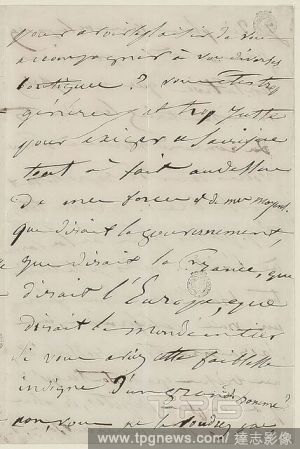 pour avoir plaisir de vous
accompagner à vos diverses
boutiques? vous êtes trop
généreux et trop juste
pour exiger un sacrifice
tout à fait au dessus
de mes forces & de mes moyens.
que dirait le gouvernement,
que dirait la France, que
dirait l'Europe, que
dirait le monde entier
si vous aviez cette faiblesse
indigne d'un grand homme?
non, vous ne le voudrez pas
TPG
www.tpgnews.com/ 達志影像